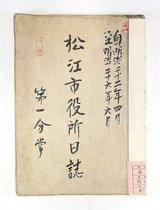 自明治二十二年四月
至明治二十六年六月
松江市役所日誌
第一分掌